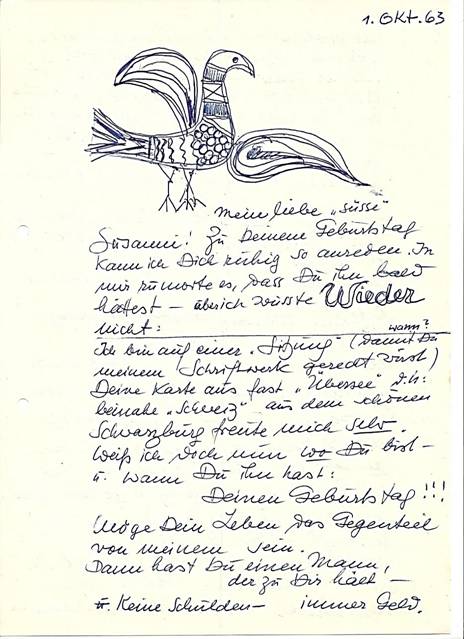 1. OKT. 63
mein liebe „süsse"
Susanni! Zu Deinem Geburtstag
kann ich Dich ruhig so anreden. In
mir rumorte es, dass Du ihn bald
hättest – aber ich wusste Wieder
nicht: wann?
Ich bin auf einer „Sitzung" (damit Du
meinem Schriftwerk gerecht wirst)
Deine Karte aus fast „Übersee" d.h:
beinahe „Schweiz" aus dem schönen
Schwarzburg freute mich sehr.
Weiß ich doch nun wo Du bist –
u. wann Du ihn hast:
Deinen Geburtstag!!!
Möge Dein Leben das Gegenteil
von meinem sein.
Dann hast Du einen Mann,
der zu Dir hält –
u. Keine Schulden – immer Geld.